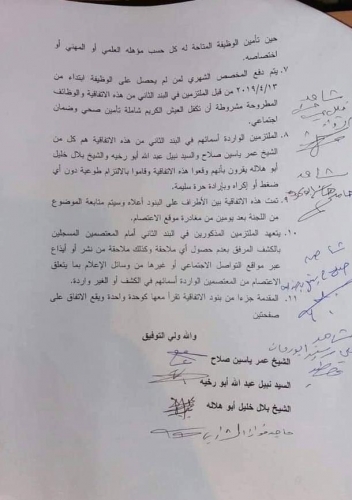 حين تأمين الوظيفة المتاحة له كل حسب مؤهله العلمي أو المهني أو
اختصاصه.
٧. يتم دفع المخصص الشهري لمن لم يحصل على الوظيفة ابتداء من
٢٠١٩/٤/١٣ من قبل الملتزمين في البند الثاني من هذه الاتفاقية والوظائف
المطروحة مشروطة أن تكفل العيش الكريم شاملة تأمين صحي وضمان
اجتماعي.
٨. الملتزمين الواردة أسمائهم في البند الثاني من هذه الاتفاقية هم كل من
الشيخ عمر ياسين صلاح والسيد نبيل عبد الله أبو رخيه والشيخ بلال خليل
أبو هلاله يقرون بأنهم وقعوا هذه الاتفاقية وقاموا بالالتزام طوعية دون أي
ضغط أو إكراه وبإرادة حرة سليمة.
٩. تمت هذه الاتفاقية بين الأطراف على البنود أعلاه وسيتم متابعة الموضوع
من اللجنة بعد يومين من مغادرة موقع الاعتصام.
١٠. يتعهد الملتزمين المذكورين في البند الثاني أمام المعتصمين المسجلين
بالكشف المرفق بعدم حصول أي ملاحقة وكذلك ملاحقة من نشر أو أيذاع
عبر مواقع التواصل الاجتماعي أو غيرها من وسائل الإعلام بما يتعلق
الاعتصام من المعتصمين الواردة أسمائهم في الكشف أو الغير واردة.
١١. المقدمة جزءا من بنود الاتفاقية تقرأ معها كوحدة واحدة ويقع الاتفاق على
صفحتين
والله ولي التوفيق
الشيخ عمر ياسين صلاح
السيد نبيل عبد الله أبو رخيه
الشيخ بلال خليل أبو هلاله
شاهد
شاهد
شاهد
شاهد